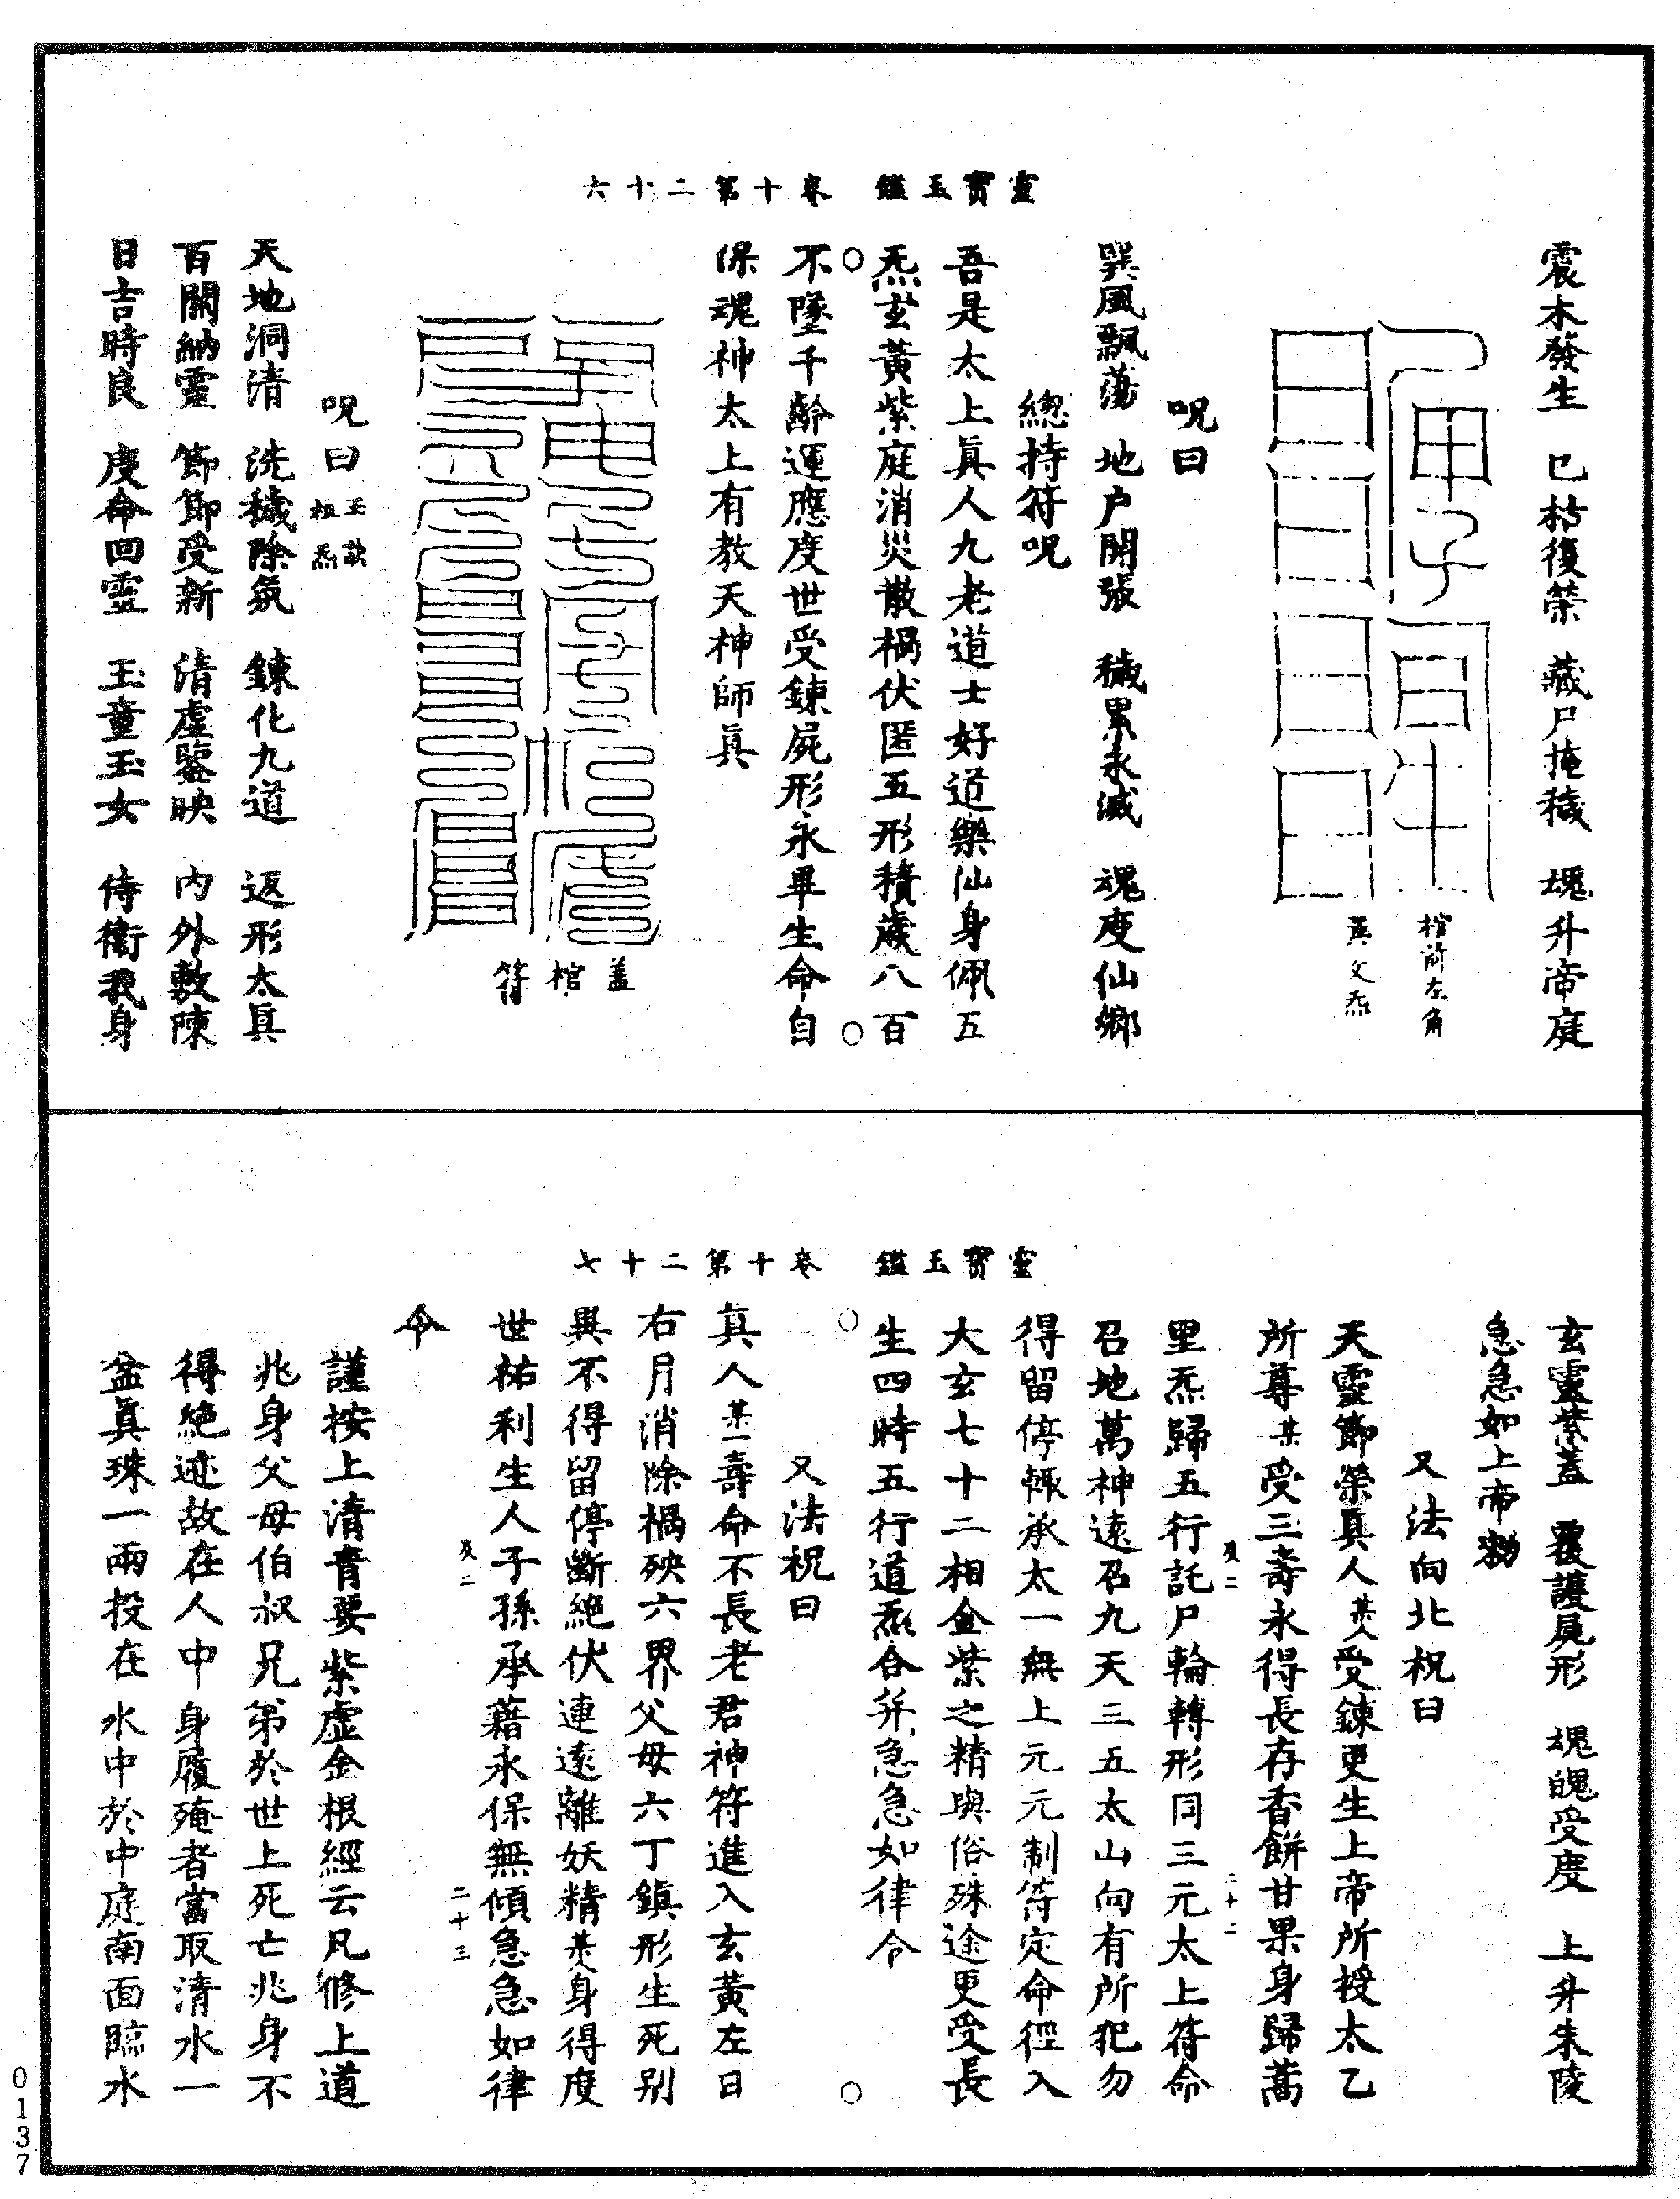 靈寶玉鑑　卷十第二十六
震木發生　已枯復榮　藏尸掩穢　魂升帝庭
棺前左角
巽文炁
呪曰
巽風飄蕩　地户開張　穢累永滅　魂度仙鄉
緫持符呪
吾是太上眞人九老道士好道樂仙身佩五
炁玄黃紫庭消災散禍伏匿五形積歲八百
不墜千齡運應度世受鍊屍形永畢生命自
保魂神太上有教天神師眞
蓋棺符
呪曰
天地洞清　洗穢除氛　鍊化九道　返形太眞
百關納靈　節節受新　清虛鑒映　内外敷陳
日吉時良　度命回靈　玉童玉女　侍衛我身
靈寶玉鑑　卷十第二十七
玄靈紫蓋　覆護屍形　魂魄受度　上升朱陵
急急如上帝勑
又法向北祝曰
天靈節榮眞人某人受鍊更生上帝所授太乙
所尊某受三壽永得長存香餅甘果身歸蒿
里炁歸五行託尸輪轉形同三元太上符命
召地萬神遠召九天三五太山向有所犯勿
得留停輙承太一無上元元制符定命徑入
大玄七十二相金紫之精與俗殊途更受長
生四時五行道炁合并急急如律令
又法祝曰
眞人某壽命不長老君神符進入玄黃左日
右月消除禍殃六界父母六丁鎮形生死别
異不得留停斷絶伏連遠離妖精某身得度
世祐利生人子孫承藉永保無傾急急如律
令
謹按上清青要紫虛金根經云凡修上道
兆身父母伯叔兄弟於世上死亡兆身不
得絶迹故在人中身履殗者當取清水一
盆眞珠一兩投在水中於中庭南面臨水
二十二
二十三
0137